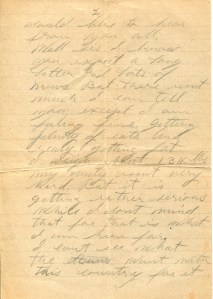 2
would like to hear
from you all.
Well Sis I know
you expect a long
letter and lots of
news But there isnt
much I can tell
you except I am
feeling fine, getting
plenty of eats and
really getting fat
I weigh about 134 lbs
my duty isnt very
Hard But it is
getting rather serious
while I dont mind
that for that is what
I am here for.
I cant see what
the want with
this country for it